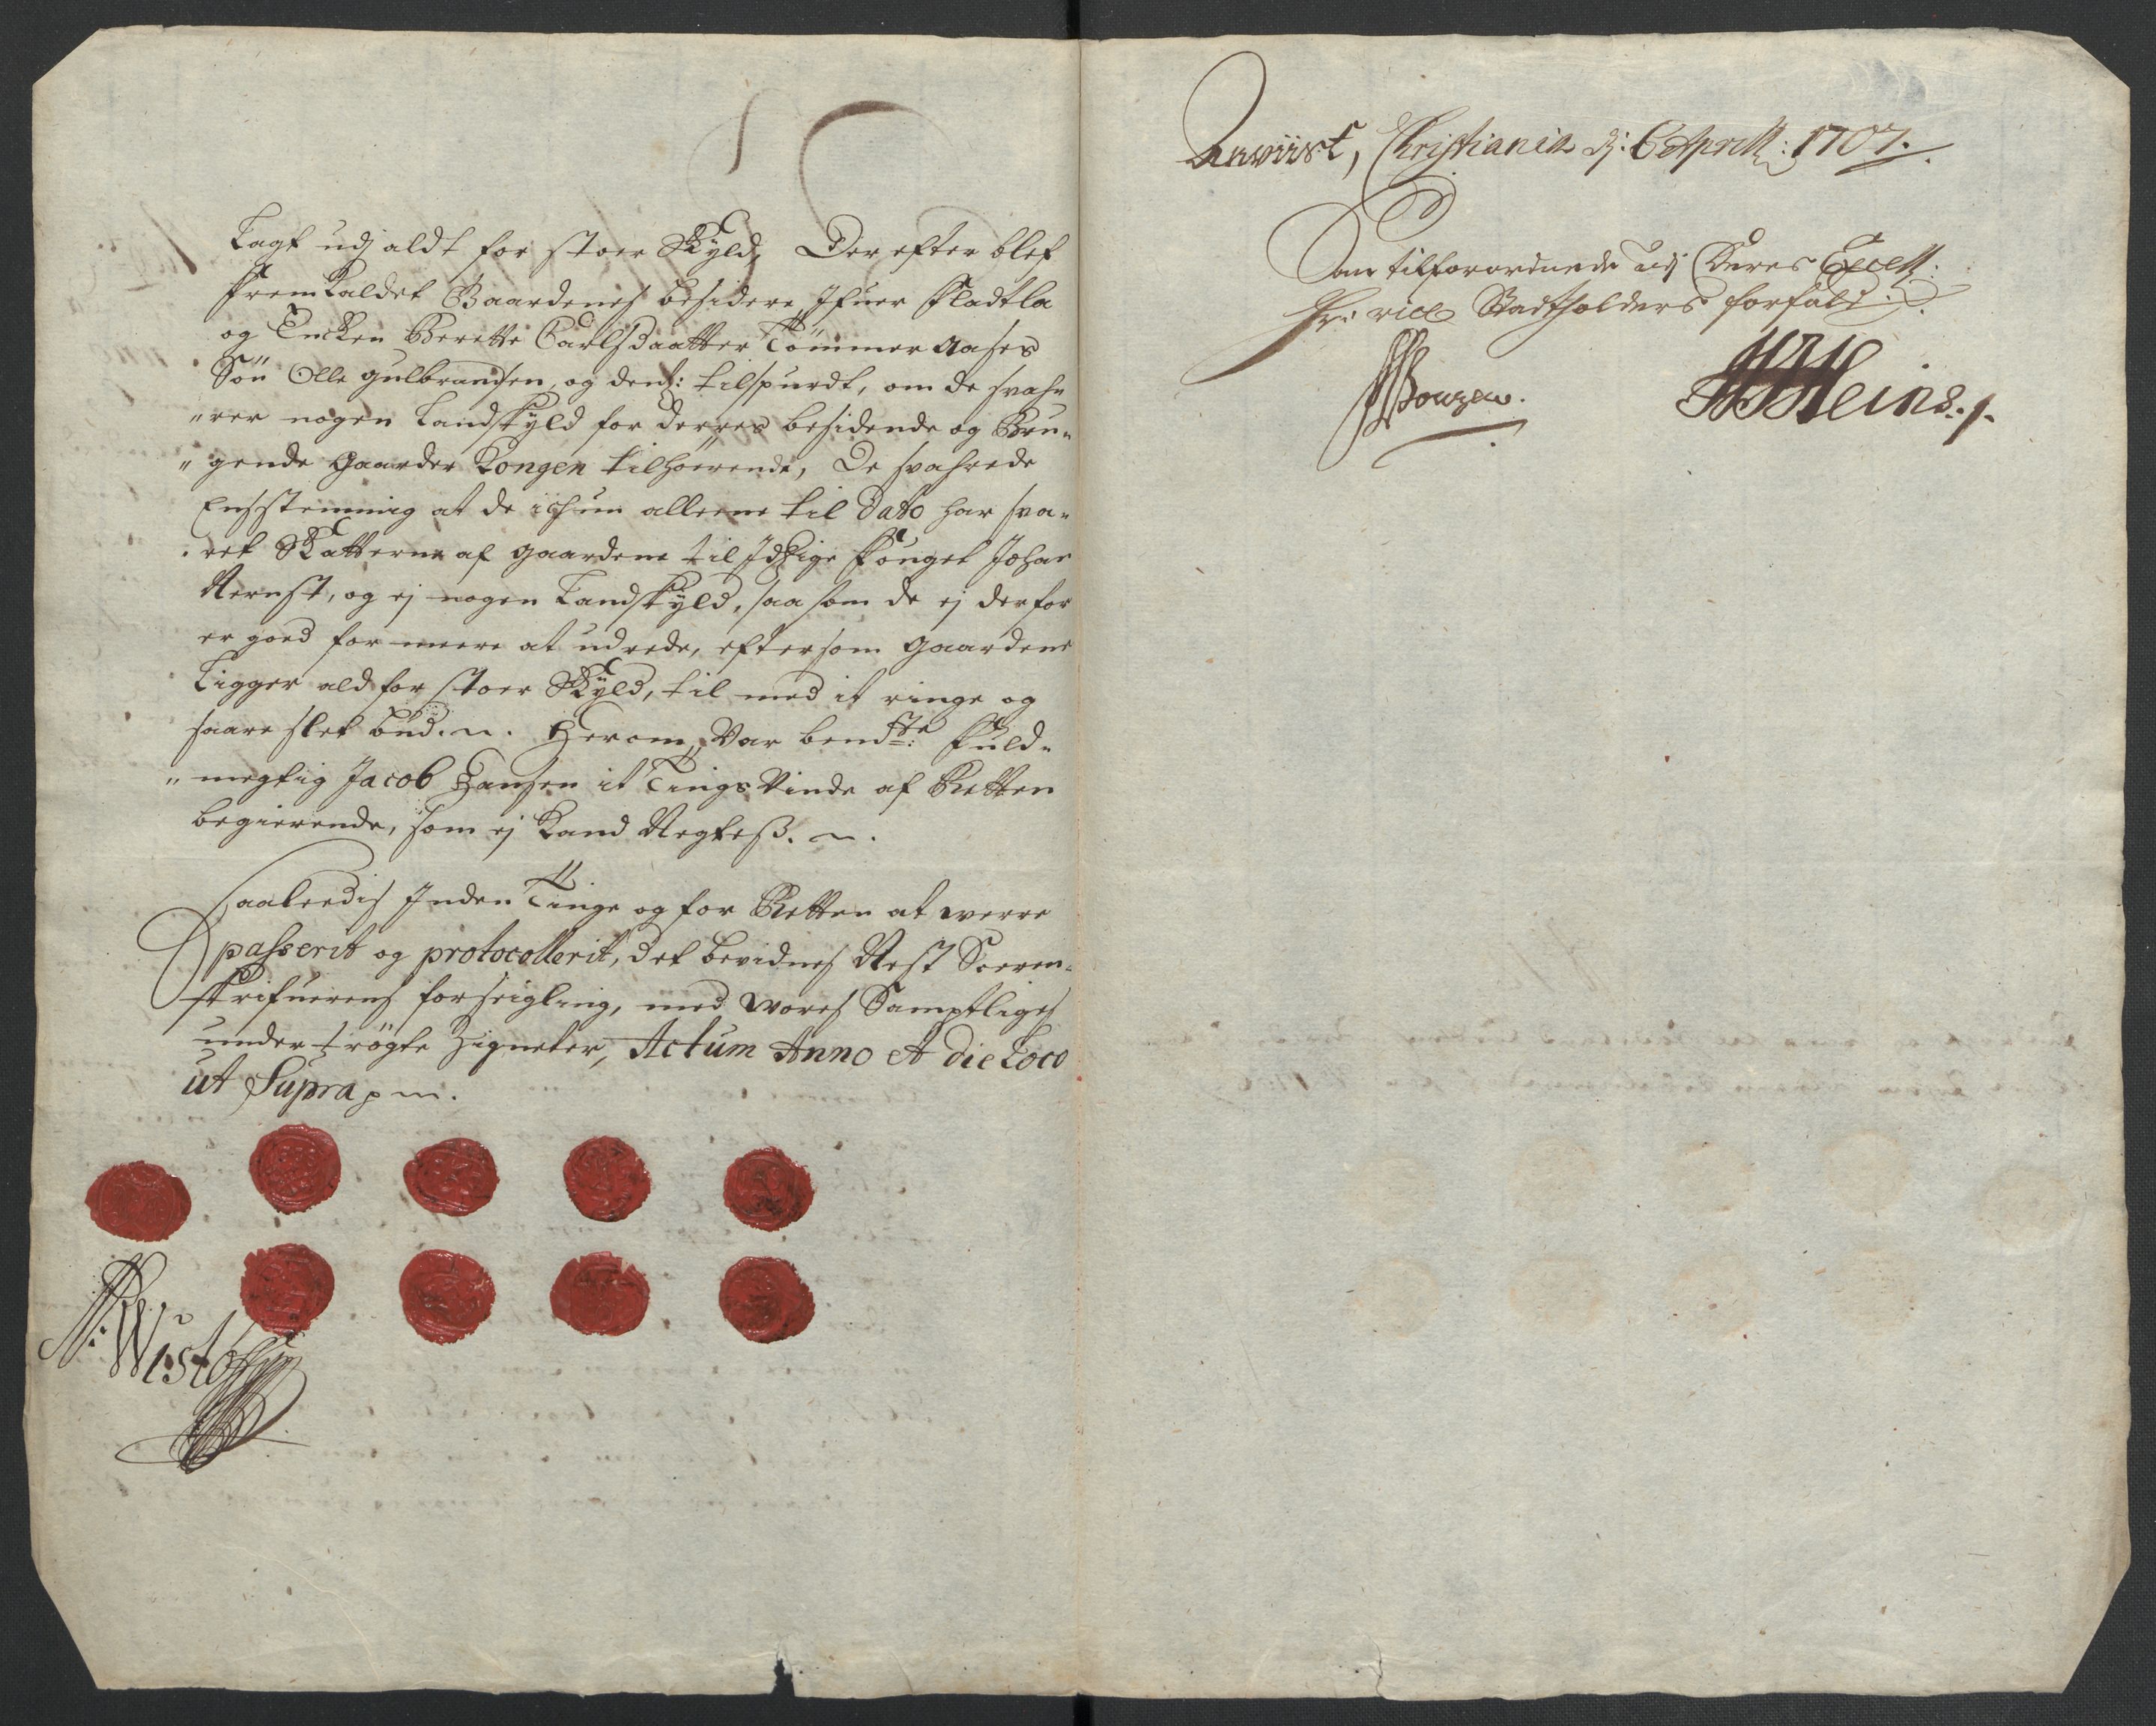 Lagt udj aldt for stoer Skyld, Der efter blef
fremkaldet Gaardenes besidere Ifuer Fladtla
og Encken Berette Carlsdaatter Tömmer Aases
Sön Olle Gulbrandsen, og dennem: tilspurdt, om de svah„
„rer nogen Landskyld for derres besidende og Bru„
„gende Gaarder Kongen tilhoerende, De svahrede
Enstemmig at de ichun alleene til Dato har sva„
„ret Skatterne af gaardene til Idtzige Fouget Johan
Rernst, og ej nogen Landskyld, saa som de ej derfor
er goed for meere at udrede, eftersom gaardene
Ligger ald for stoer Skyld, til med it ringe og
saare slet bud. Herom Var bemdte: Fuld„
„megtig Jacob Hansen it Tings Vinde af Retten
begierende, som ej Kand Negteß.
Saaleedis Inden Tinge og for Retten at werre
passerit og protocollerit, det bevidnes Nest Soeren„
skrifuerens forseigling, med wores Samptliges
undertrögte Zigneter, Actum Anno et die Loco
ut Supra
Anviist, Christiania dj: 6 April: 1707.
Som tilforordnede udj Deres Excell:
Hr: vice Stadtholders forfald.